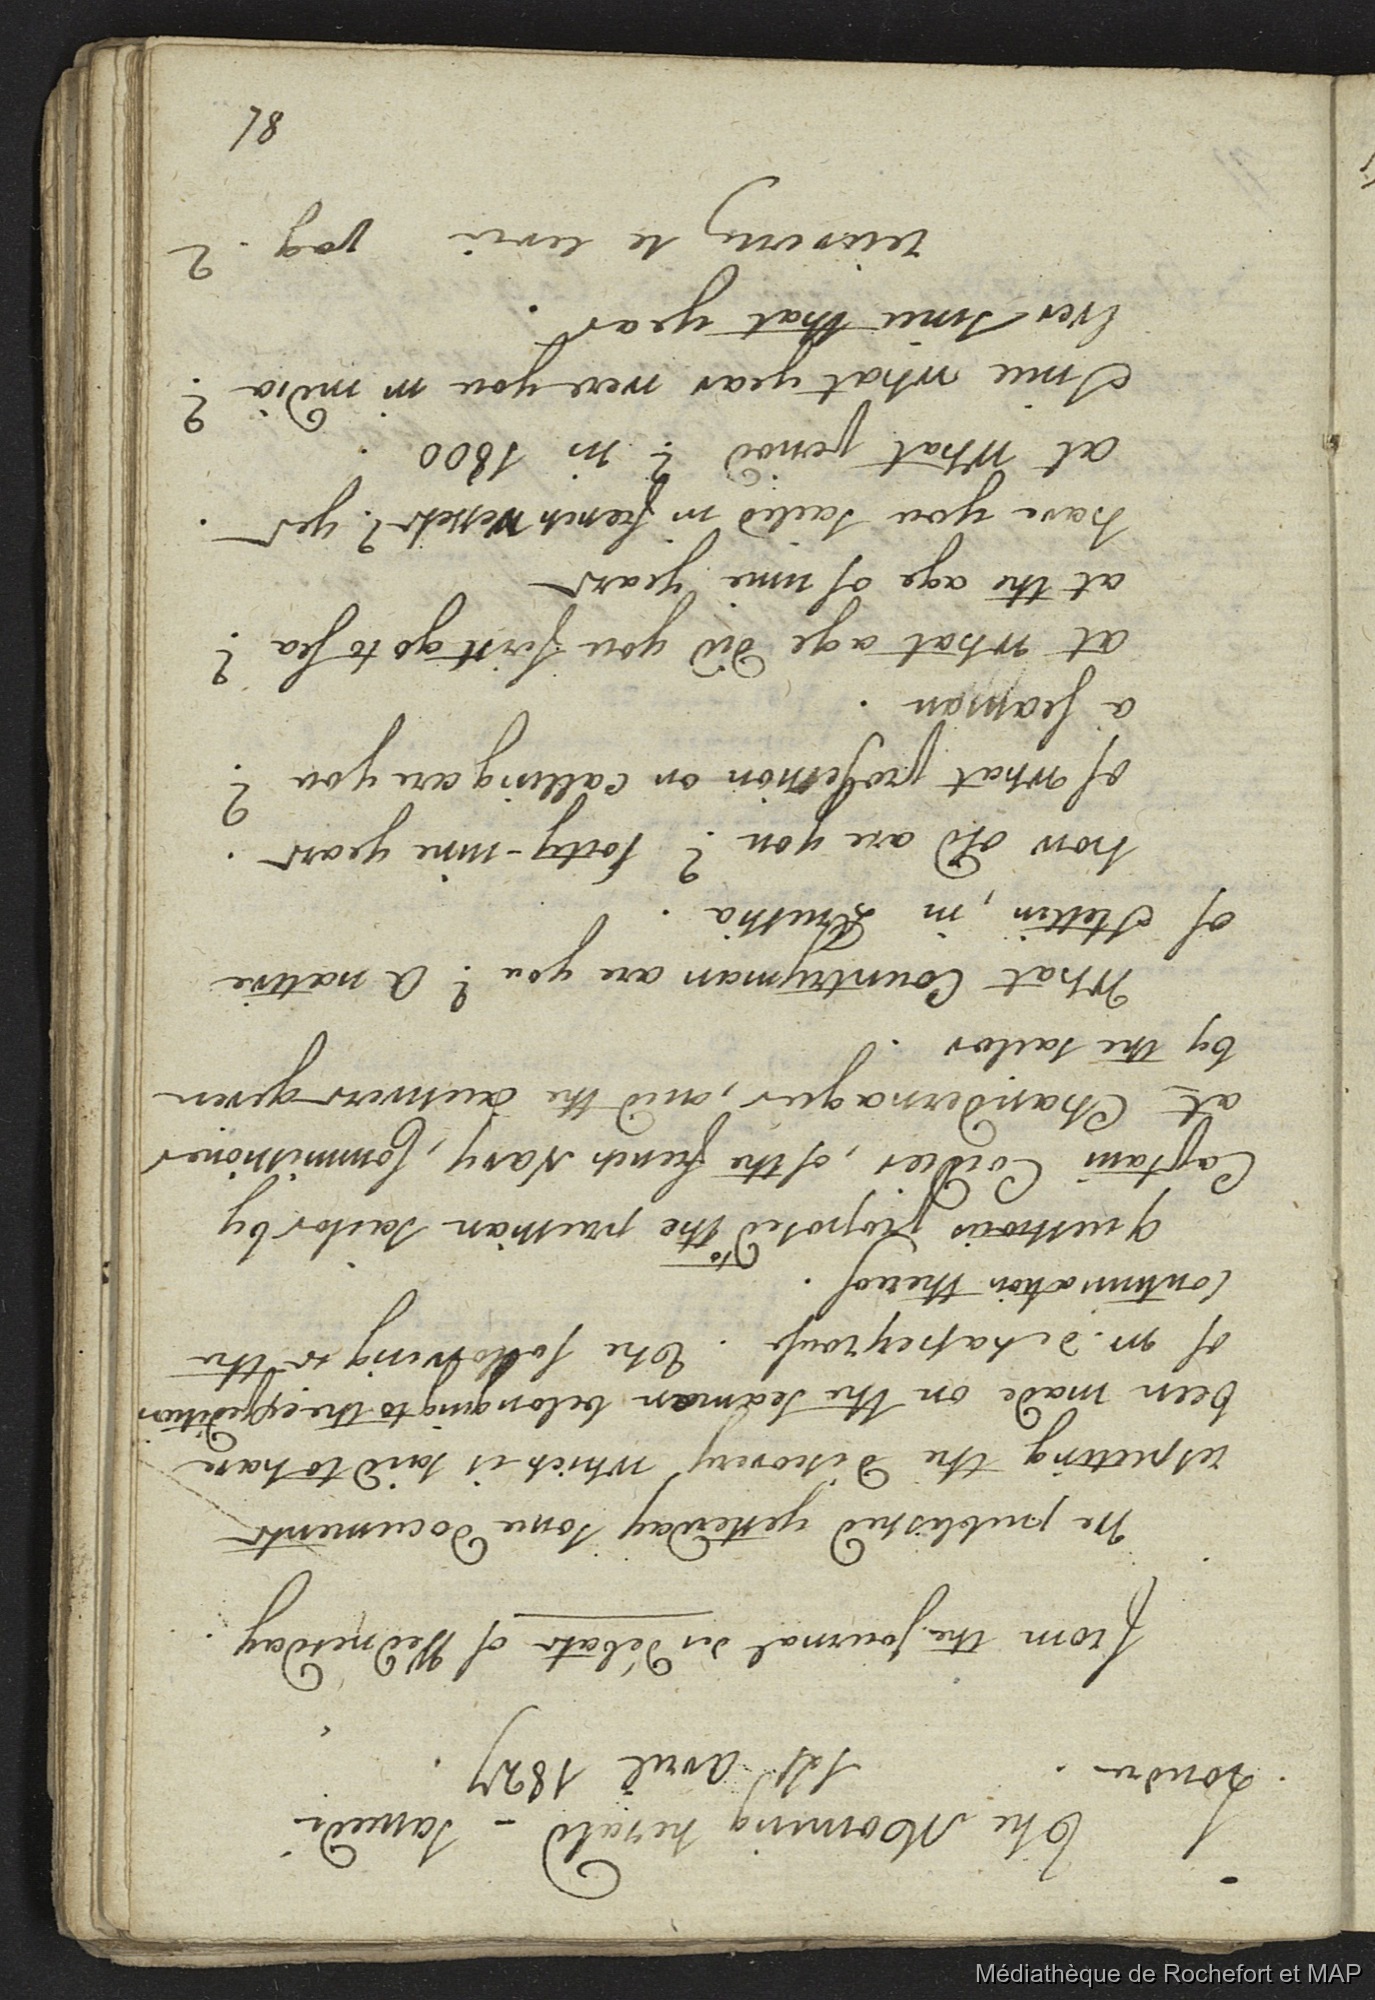 The Morning herald - Samedi
Londres . 1er avril 1827 .
from the journal des Débats of Wednesday .
We published yesterday some documents
respecting the discovery which is said to have
been made on the seaman belonging to the expedition
of m. de lapeyrouse . The following is the
Continuation thereof .
questions proposed to the prussian sailor by
Captain Cordier, of the french Navy, Commissioner
at Chandernagor, and the answers given
by the sailor .
What Countryman are you ? A native
of Stettin, in Prussia .
how old are you ? forty-nine years .
of what profession or calling are you ?
a seaman .
at what age did you first go to sea ?
at the age of nine years
have you sailed in french vessels ? yes .
at what period ? in 1800 .
Since what year were you in india ?
Ever since that year .
pag. 2
81
Médiathèque de Rochefort et MAP